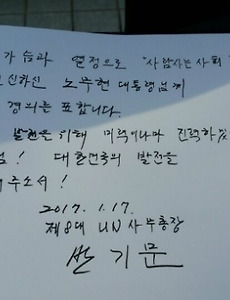 가슴과 열정으로 "사람사는 사회
헌신하신 노무현 대통령님께
경의를 표합니다.
발전을 위해 미력이나마 진력하겠
대한민국의 발전을
주소서!
2017. 1. 17.
제8대 UN 사무총장
반기문